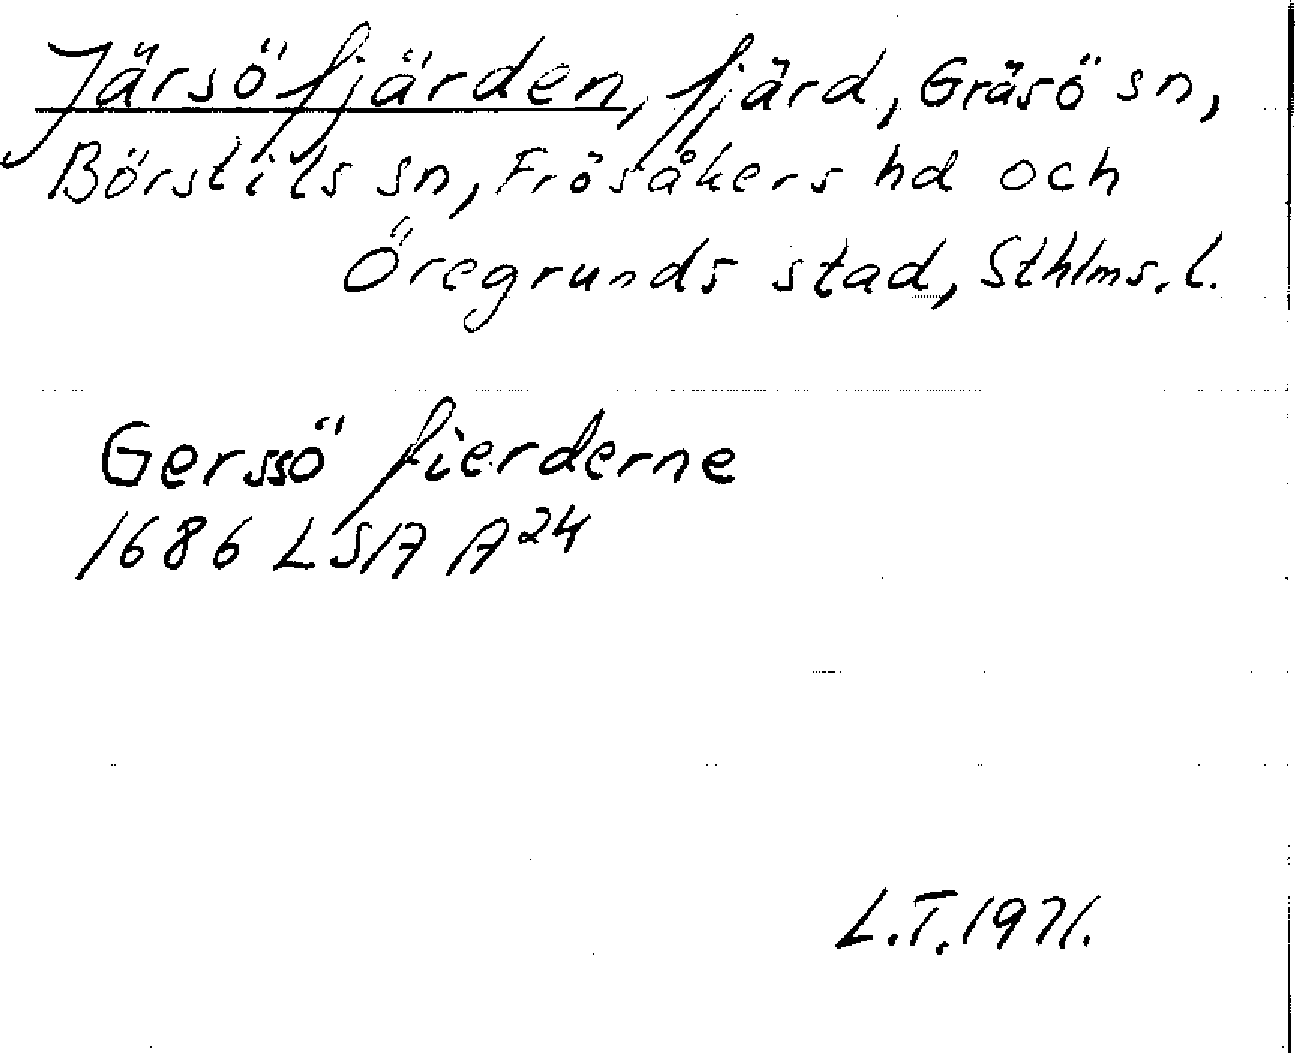 Järsöfjärden, fjärd, Gräsö sn,
Börstils sn, Frösåkers hd och
Öregrunds stad, Sthlms. l.
Gerssö fierderne
1686 LSA A24
L.T. 1971.